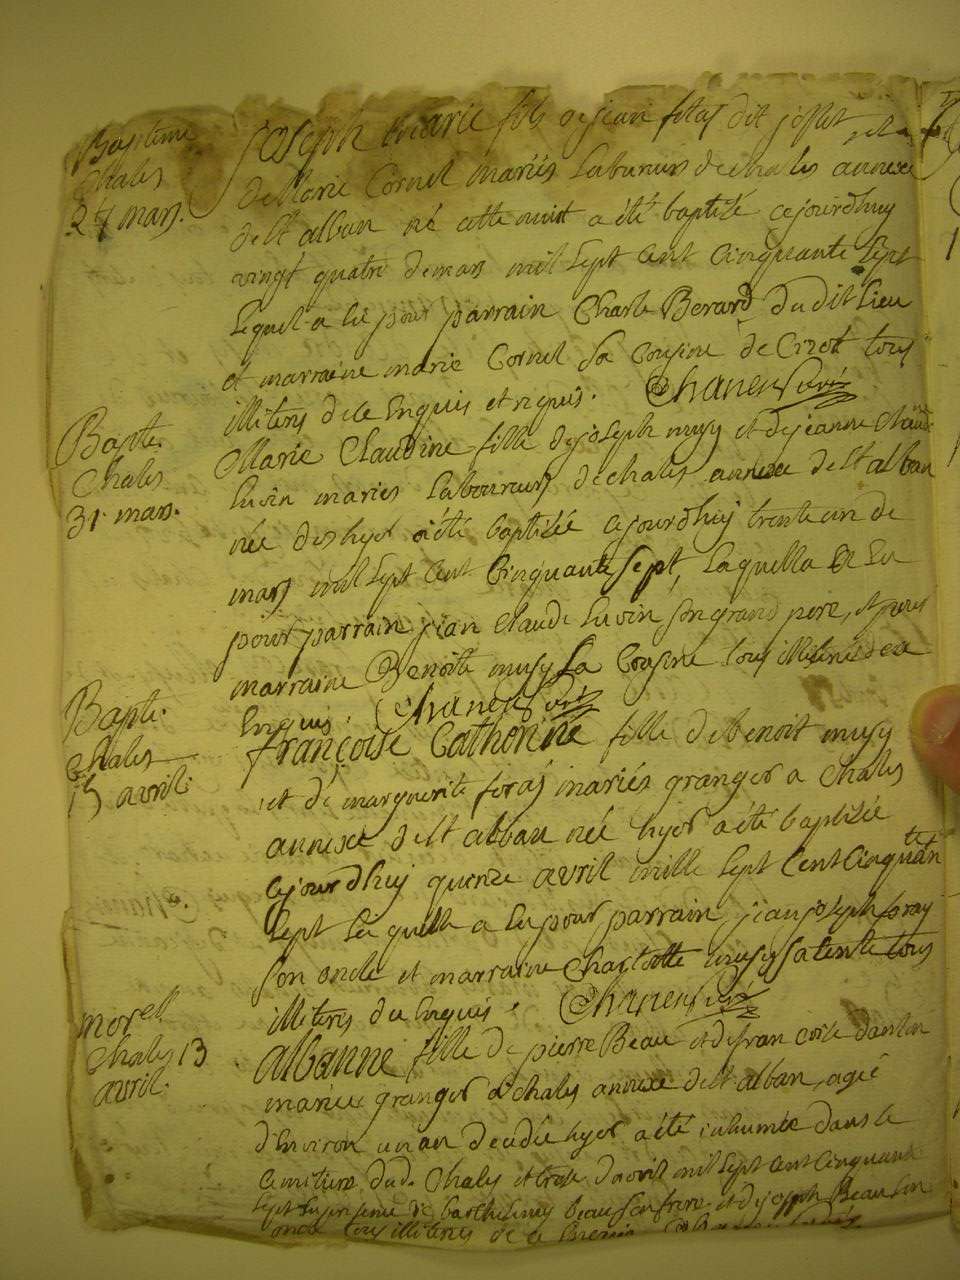 Bapteme
Chales
24 mars.
joseph marie fils de jean fitaj dit joffet et
de Marie Cornel mariés Laboureurs de chales annexe
de st alban né cette nuit a été baptisé cejourdhuy
vingt quatre de mars mil sept cent cinquante sept
lequel a eu pour parrain Charle Berard du dit lieu
et marraine marie Cornel sa cousine de Crzot tous
illiteres de ce Enquis et requis. Chanen Curé
Bapte.
Chales
31 mars.
Marie Claudine fille de joseph musy et de jeanne Claude
Luvin mariés Laboureurs de chales annexe de st alban
née des hyer a été baptisée cejourdhuy trente un de
mars mil sept cent cinquante sept, laquelle a eu
pour parrain jean claude Luvin son grand pere, et pour
marraine Benoite musy sa cousine tous illiteres de ce
Enquis. Chanen Curé
Bapte.
Chales
15 avril.
françoise Catherine fille de benoit musy
et de marguerite foraj mariés granger a Chales
annexe de st alban née hyer a été baptisée
cejourdhuy quinze avril mille sept cent cinquante
sept laquelle a eu pour parrain jean joseph foray
son oncle et marraine Charlotte musy sa tente tous
illiteres de ce Enquis. Chanen Curé
morel
Chales 13
avril.
albanne fille de pierre Beau et de fran coise
mariée granger a chales annexe de st alban, agée
d'Environ un an decedée hyer a été inhumée dans le
cimitiere dud. Chales et treze d'avril mil sept cent cinquante
sept En presence de barthelemy beau son frere et de joseph Beau son
oncle tous illiteres de ce